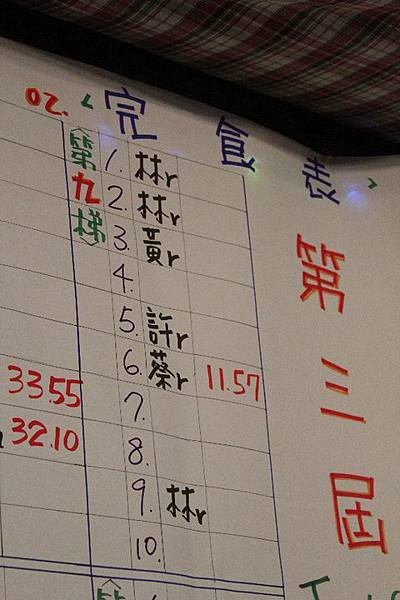 02.
<完食表>
第三屆
<第九梯>
1. 林r
2. 林r
3. 黃r
4.
5. 許r
6. 蔡r 11.57
7.
8.
9. 林r
10.
33.55
32.10